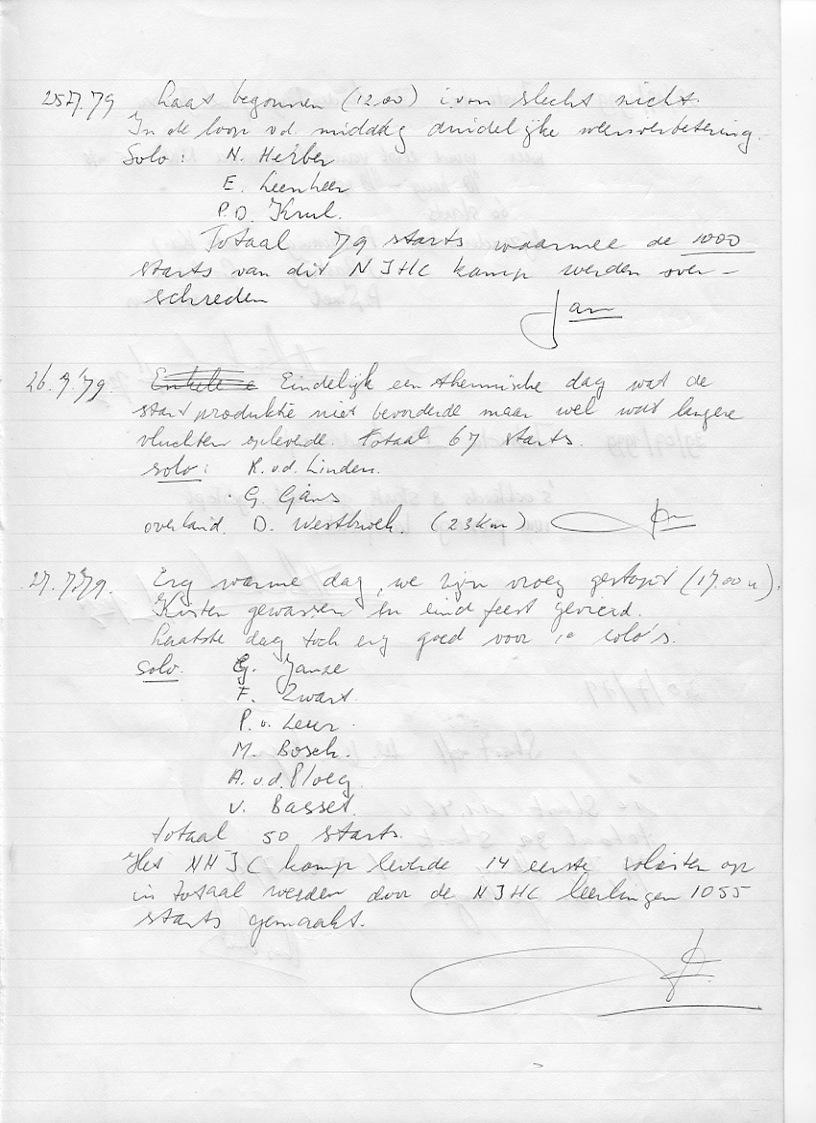 25.7.79 Laat begonnen (12.00) i.v.m slecht zicht.
In de loop v.d. middag duidelijke weersverbetering.
Solo: N. Herber
E. Leenheer
P.D. Krul.
Totaal 79 starts waarmee de 1000
starts van dit NJHC kamp werden over-
schreden
Jan
26.7.'79. Enkele Eindelijk een thermische dag wat de
startproduktie niet bevorderde maar wel wat langere
vluchten opleverde. Totaal 67 starts.
solo: R. v.d. Linden.
G. Gans
overland. D. Westbroek. (23km)
27.7.'79. Erg warme dag, we zijn vroeg gestopt (17.00u).
Kisten gewassen en eind feest gevierd.
Laatste dag toch erg goed voor 1e solo's.
solo. G. Janze
F. Zwart.
P. v. Leur.
M. Bosch.
A. v.d. Ploeg
V. Basset.
totaal 50 starts.
Het NHJC kamp leverde 14 eerste solisten op
in totaal werden door de NJHC leerlingen 1055
starts gemaakt.